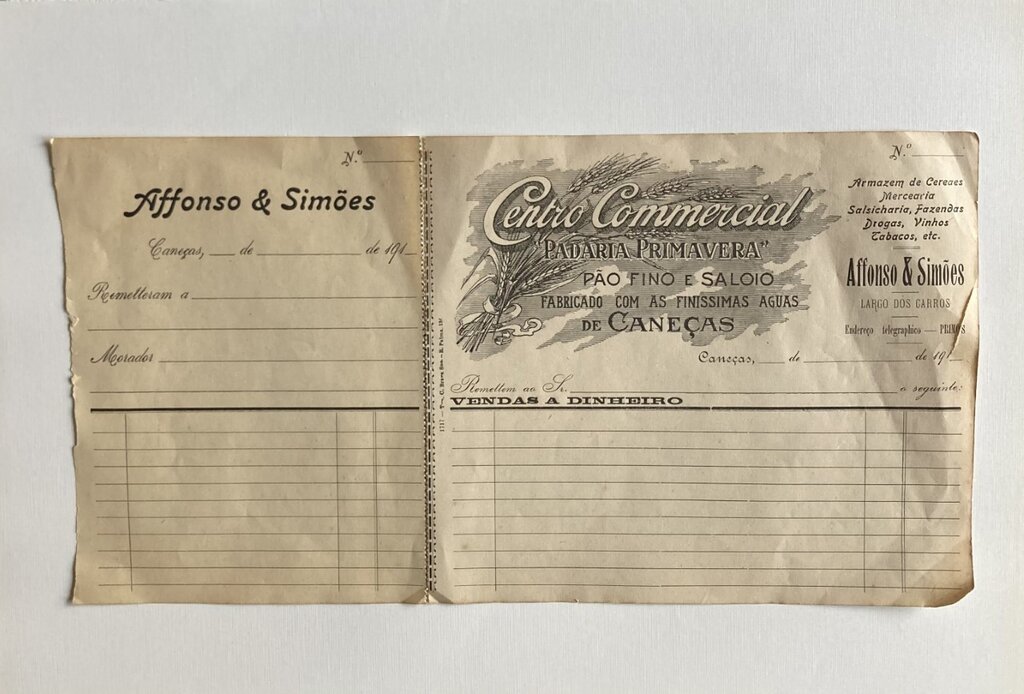 N.º
Affonso & Simões
Caneças, de de 191
Remetteram a
Morador
N.º
Centro Commercial
"PADARIA PRIMAVERA"
PÃO FINO E SALOIO
FABRICADO COM AS FINISSIMAS AGUAS
DE CANEÇAS
Armazem de Cereaes
Mercearia
Salsicharia, Fazendas
Drogas, Vinhos
Tabacos, etc.
Affonso & Simões
LARGO DOS CARROS
Endereço telegraphico — PRIMOS
Caneças, de de 191
Remettem ao Sr. o seguinte:
VENDAS A DINHEIRO
1717